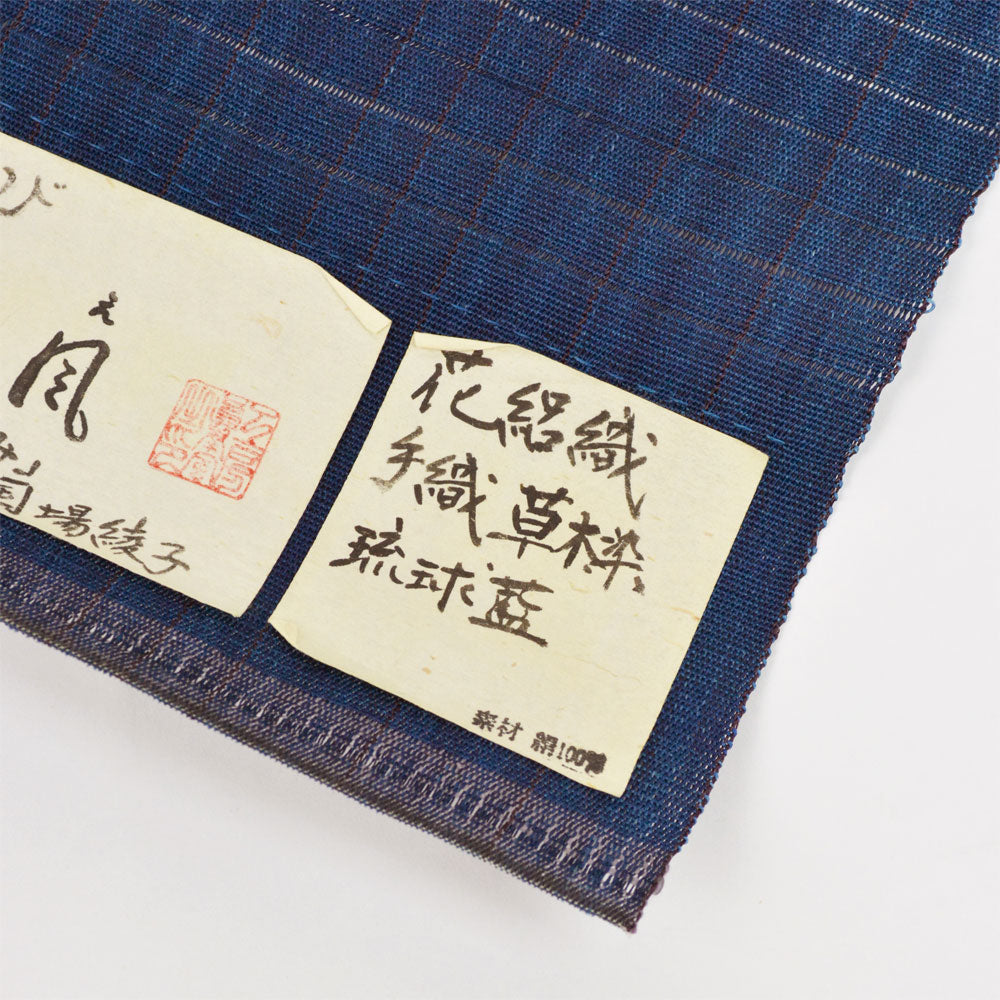 び
え
風
菌場綾子
花絽織
手織 草木染
琉球藍
素材 絹100%